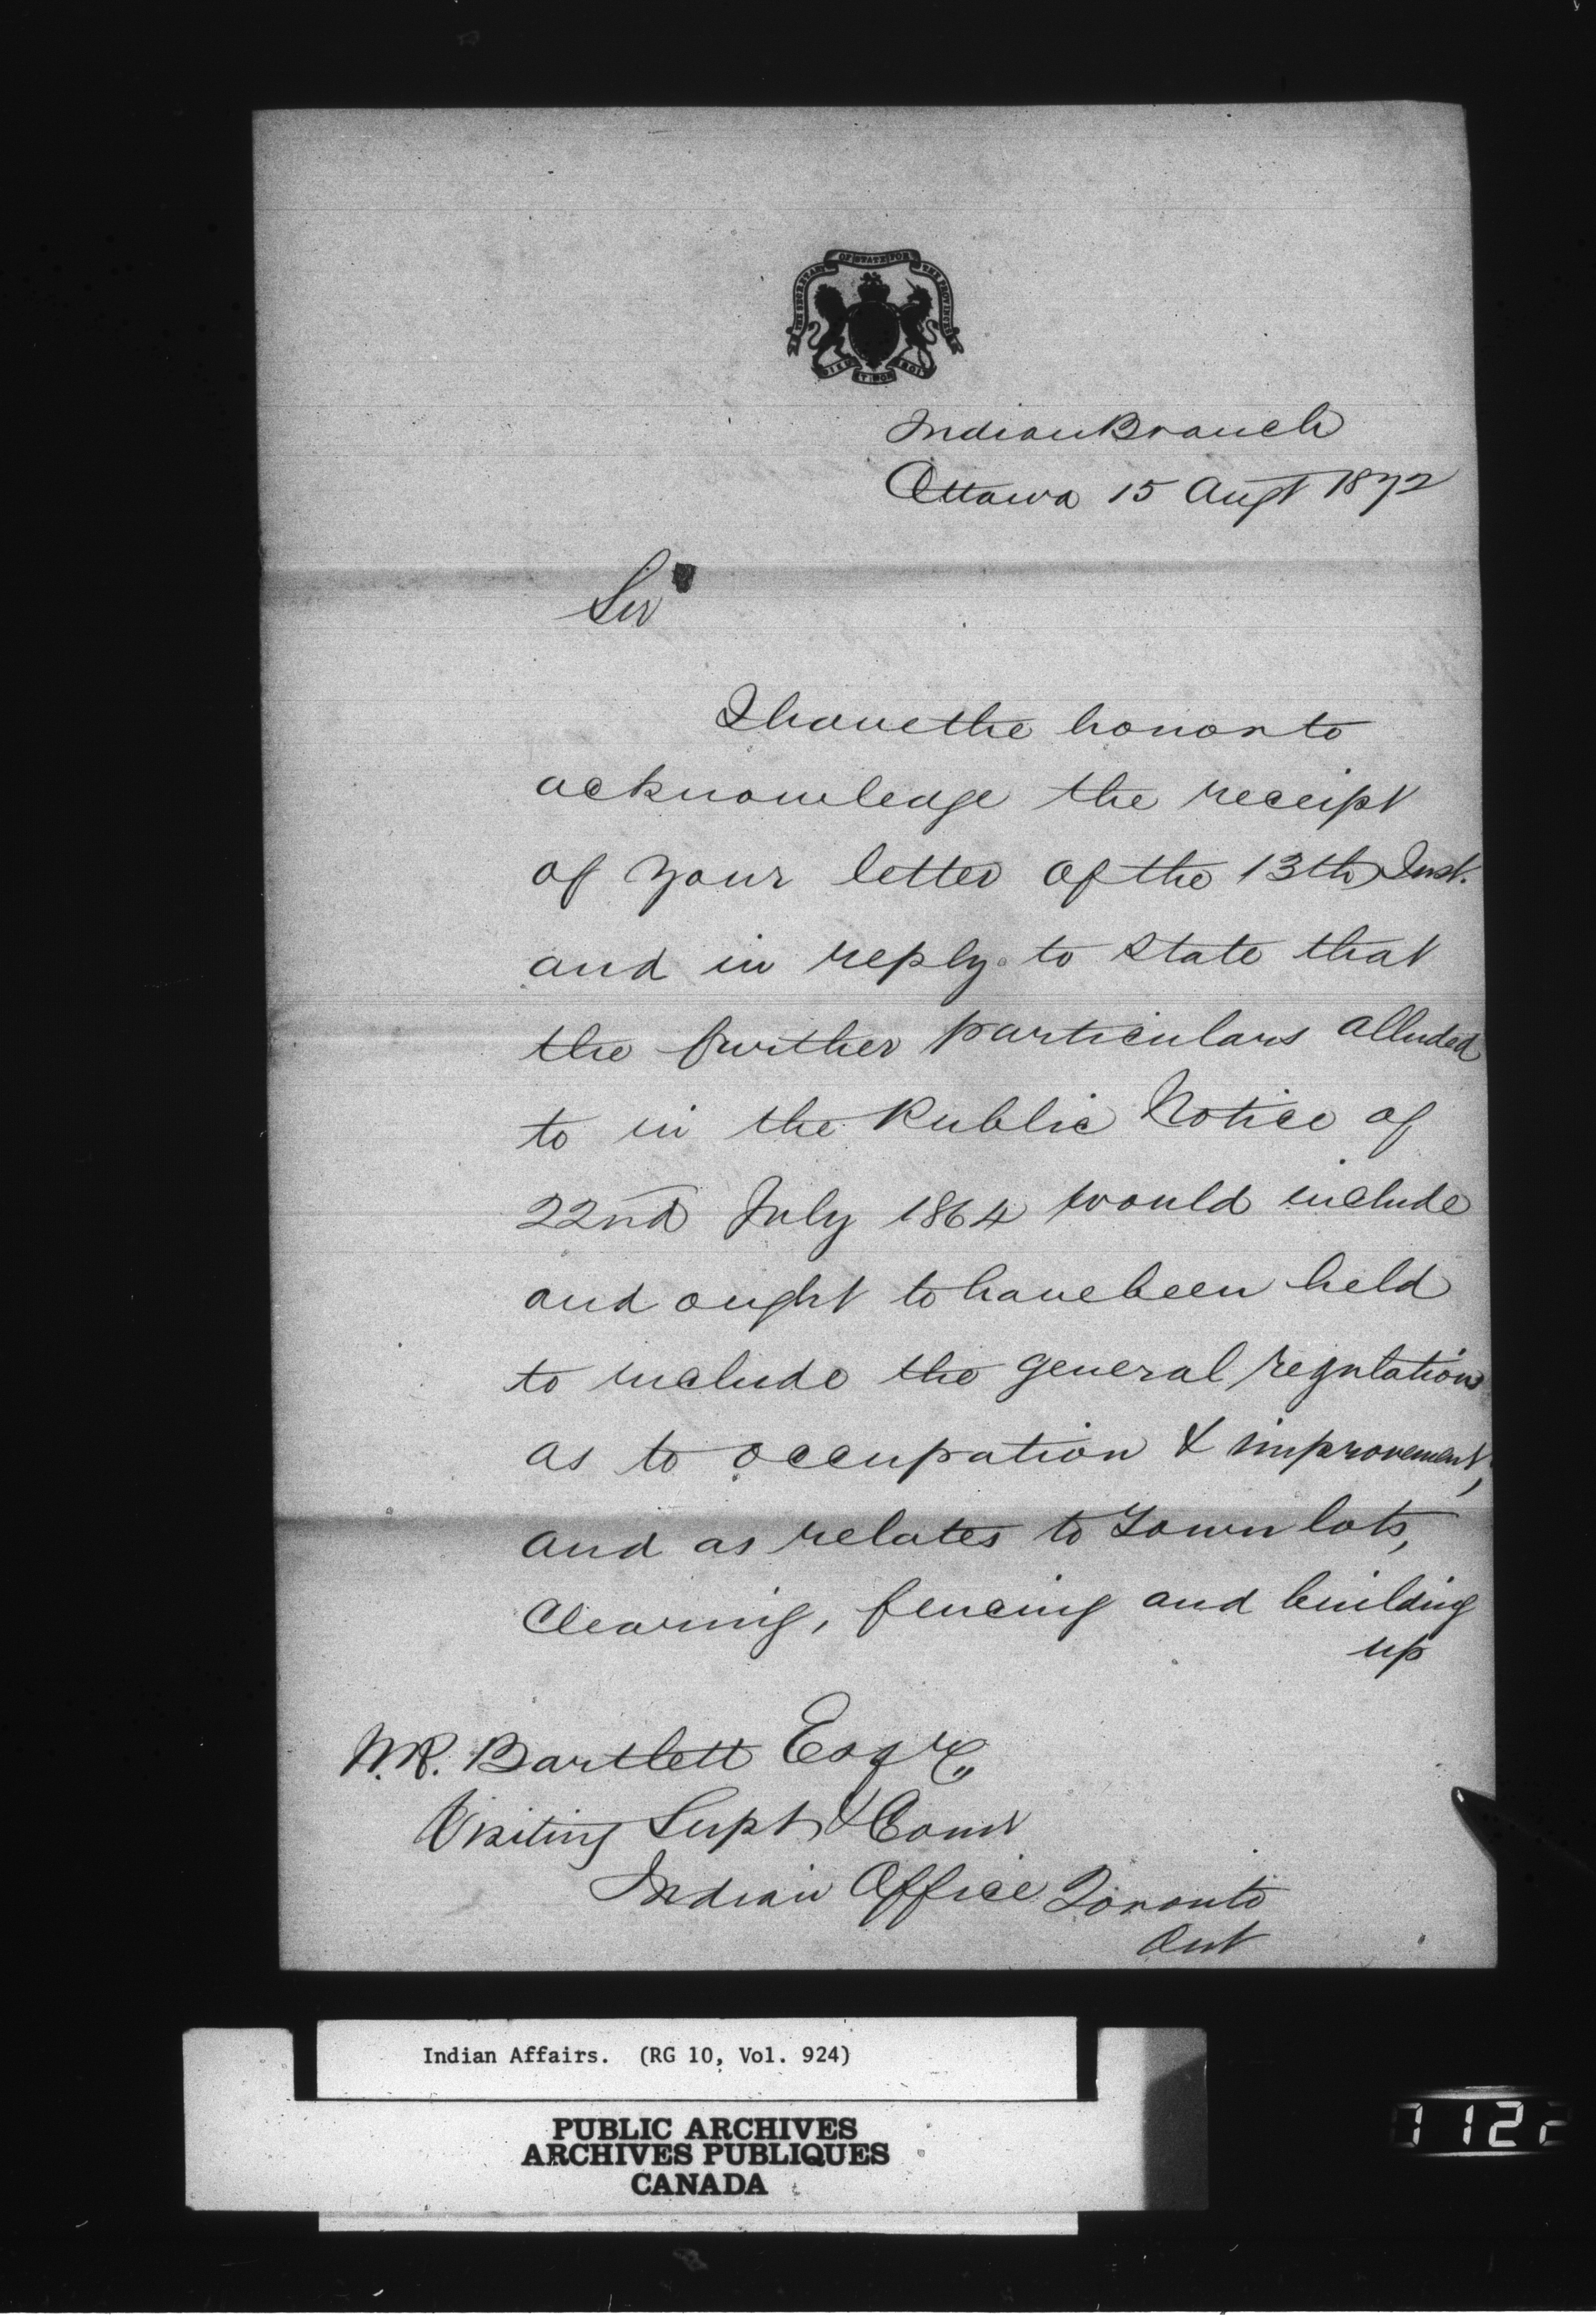 THE SECRETARY OF STATE FOR THE PROVINCES
DIEU ET MON DROIT
Indian Branch
Ottawa 15 Augt 1872
Sir
I have the honor to
acknowledge the receipt
of your letter of the 13th Inst.
and in reply to state that
the further particulars alluded
to in the Public Notice of
22nd July 1864 would include
and ought to have been held
to include the general regulations
as to occupation & improvement,
and as relates to Town lots,
Clearing, fencing and building
up
W.R. Bartlett Esqre
Visiting Supt & Comr
Indian Office Toronto
Ont
Indian Affairs. (RG 10, Vol. 924)
PUBLIC ARCHIVES
ARCHIVES PUBLIQUES
CANADA
1122